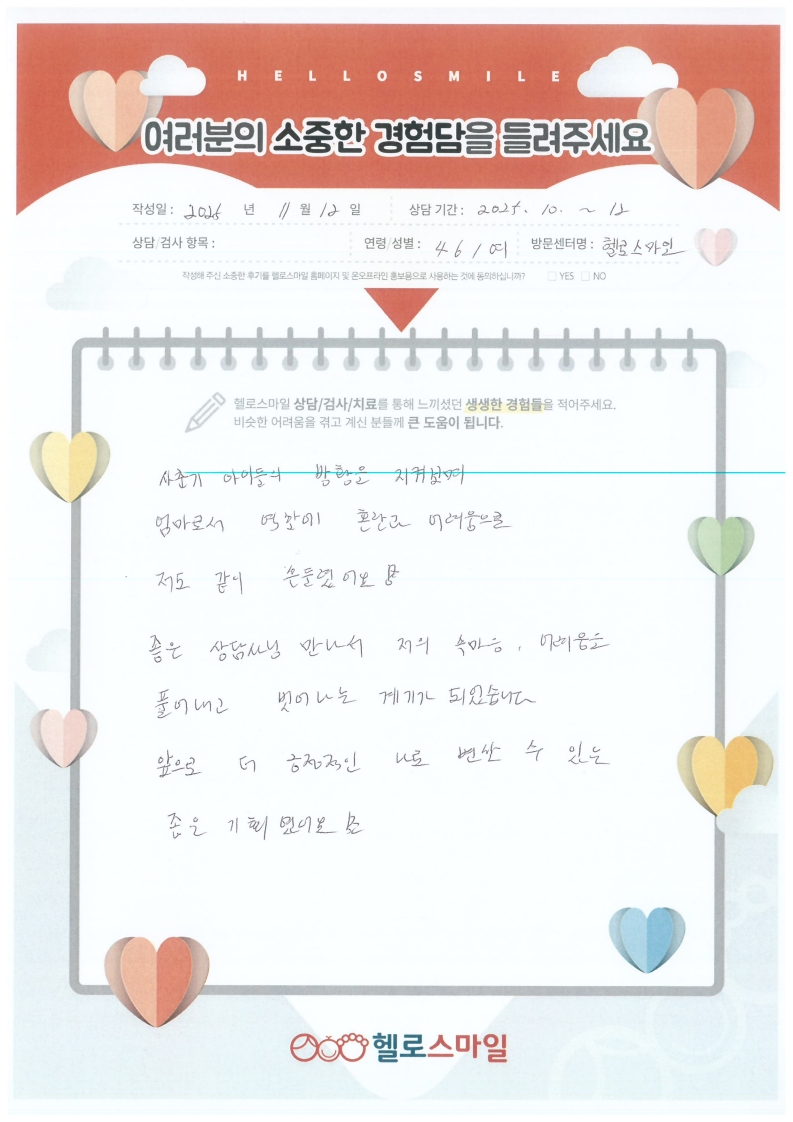 HELLOSMILE
여러분의 소중한 경험담을 들려주세요
작성일 : 2025 년 11 월 12 일 상담 기간 : 2025. 10. ~ 12
상담/검사 항목 : 연령/성별 : 46 / 여 방문센터명 : 헬로스마일
작성해 주신 소중한 후기를 헬로스마일 홈페이지 및 온오프라인 홍보용으로 사용하는 것에 동의하십니까? YES NO
헬로스마일 상담/검사/치료를 통해 느끼셨던 생생한 경험들을 적어주세요.
비슷한 어려움을 겪고 계신 분들께 큰 도움이 됩니다.
사춘기 아이들의 방황을 지켜보며
엄마로서 역할에 혼란과 어려움으로
저도 같이 흔들렸어요
좋은 상담사님 만나서 저의 속마음, 어려움을
풀어내고 벗어나는 계기가 되었습니다
앞으로 더 긍정적인 나로 변할 수 있는
좋은 기회 였어요
헬로스마일